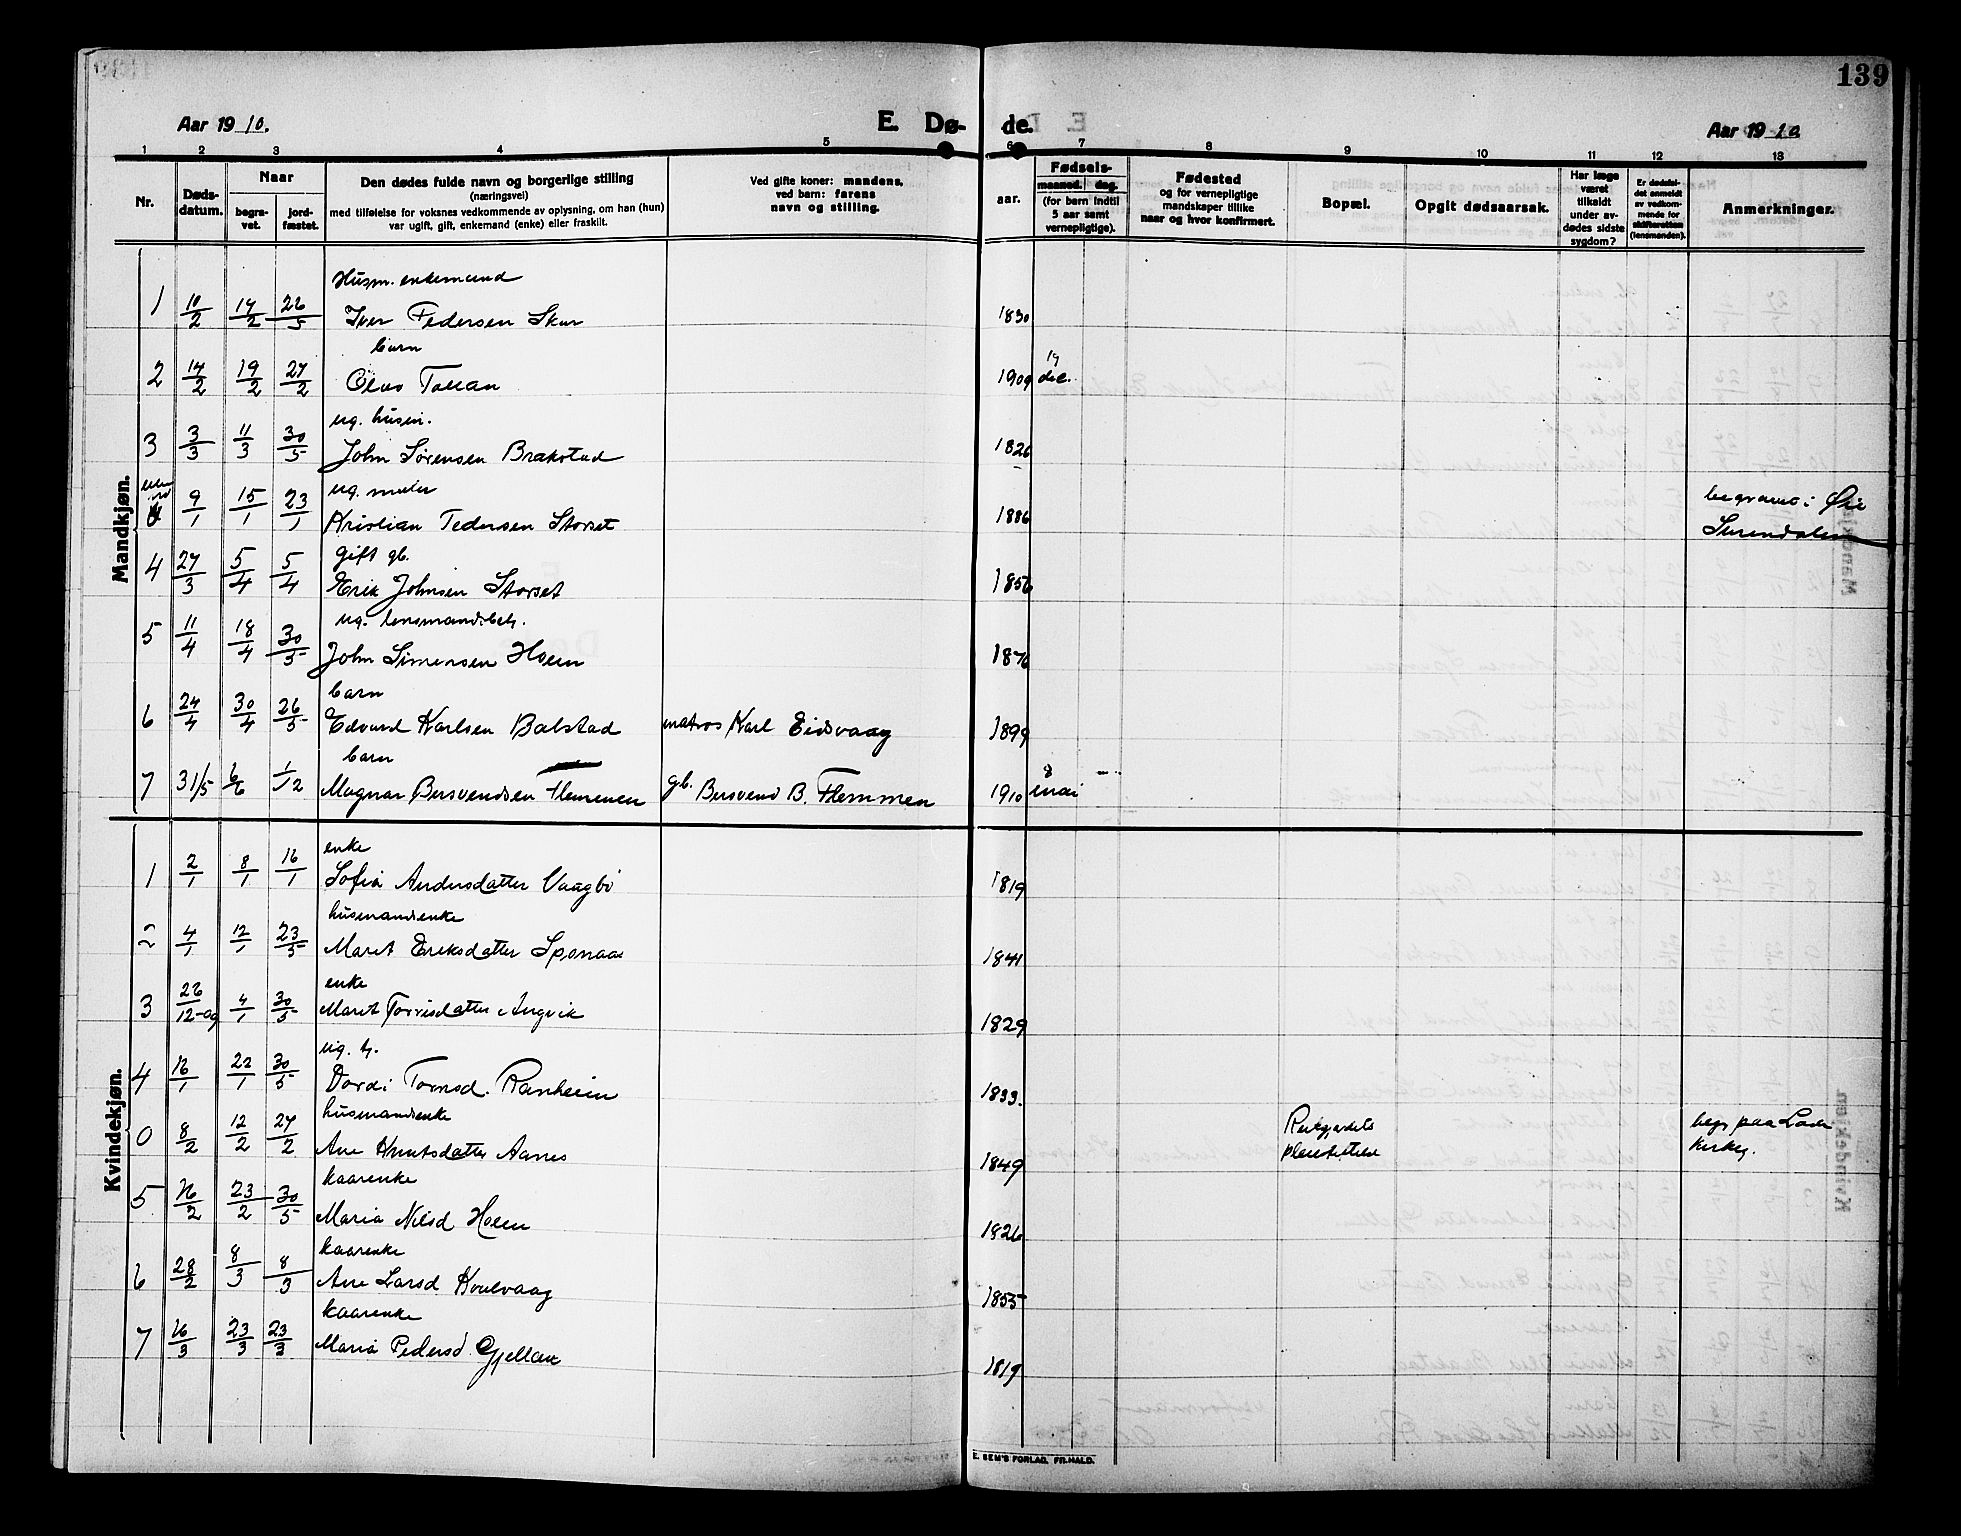 139
Aar 1910.
E. Dø- de.
Aar 1910
1 2 3 4 5 6 7 8 9 10 11 12 13
Nr.
Døds-
datum.
Naar
begra-
vet.
jord-
fæstet.
Den dødes fulde navn og borgerlige stilling
(næringsvei)
med tilføielse for voksnes vedkommende av oplysning, om han (hun)
var ugift, gift, enkemand (enke) eller fraskilt.
Ved gifte koner: mandens,
ved barn: farens
navn og stilling.
aar.
Fødsels-
maaned. dag.
(for børn indtil
5 aar samt
vernepligtige).
Fødested
og for vernepligtige
mandskaper tillike
naar og hvor konfirmert.
Bopæl.
Opgit dødsaarsak.
Har læge
været
tilkaldt
under av-
dødes sidste
sygdom?
Er dødsfal-
det anmeldt
av vedkom-
mende for
skifteretten
(lensmanden).
Anmerkninger.
Mandkjøn.
Husm. enkemand
1 10/2 17/2 22/5 Iver Pedersen Skar 1830
barn
2 14/2 19/2 27/2 Olav Tallan 1909 19 dec.
ug. husm.
3 3/3 11/3 30/5 John Sørensen Brakstad 1826
ug. maler
9/1 15/1 23/1 Kristian Pedersen Storset 1886 begravet i Øie
Surendalen
gift gb.
4 27/3 5/4 5/4 Erik Johnsen Storset 1856
ug. lensmandsbetj.
5 11/4 18/4 30/5 John Simensen Hoem 1876
barn
6 24/4 30/4 26/5 Edvard Karlsen Bolstad matros Karl Eidsvaag 1899
barn
7 31/5 6/6 1/12 Magnar Bersvendsen Flemmen gb. Bersvend B. Flemmen 1910 8 mai
Kvindekjøn.
enke
1 2/1 8/1 16/1 Sofia Andersdatter Vaagbø 1819
husmandsenke
2 4/1 12/1 23/5 Maret Eriksdatter 1841
enke
3 22/12-09 4/1 30/5 Maret Torrisdatter Angvik 1829
ug. t.
4 16/1 22/1 30/5 Dordi Tornsd. Ranheim 1833.
husmandsenke
0 8/2 12/2 27/2 Ane Knutsdatter Aarnes 1849 Reitgjerdets
pleiestiftelse begr. paa Lade
kirkeg.
kaarenke
5 16/2 23/2 30/5 Maria Nilsd Hoem 1826
kaarenke
6 28/2 8/3 8/3 Ane Larsd Koulvaag 1855
kaarenke
7 16/3 23/3 23/3 Maria Pedersd. Gjellan 1819
E. SEM'S FORLAG, FR.HALD.